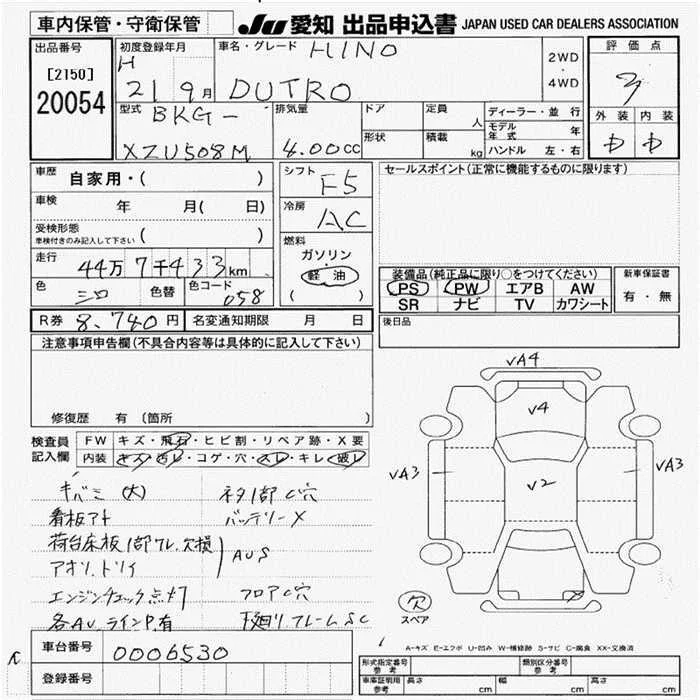 車内保管・守衛保管
JU 愛知 出品申込書 JAPAN USED CAR DEALERS ASSOCIATION
出品番号
[2150]
20054
初度登録年月
H
21 9月
車名・グレード
HINO
DUTRO
2WD
・
4WD
評価点
3
外装 内装
型式
BKG-
XZU508M
排気量
4.00cc
ドア
形状
定員
人
積載
kg
ディーラー・並行
モデル年式 年
ハンドル 左・右
車歴 自家用・( )
車検 年 月( 日)
受検形態
車検付きのみ記入して下さい ( )
走行
44万7千433km
色
シロ
色替
色コード
058
シフト
F5
冷房
AC
燃料
ガソリン
軽油
( )
セールスポイント(正常に機能するものに限ります)
装備品(純正品に限り○をつけてください)
PS PW エアB AW
SR ナビ TV カワシート
新車保証書
有・無
R券 8,740円
名変通知期限 月 日
後日品
注意事項申告欄(不具合内容等は具体的に記入して下さい)
修復歴 有 〔箇所
検査員
記入欄
FW キズ・飛石・ヒビ割・リペア跡・X要
内装 キズ・汚レ・コゲ・穴・スレ・キレ・破レ
キバミ(大)
看板アト
荷台床板1部ワレ.欠損
アオリ.トリイ
AUS
エンジンチェック点灯
各AU.ラインP有
ネタ1部C穴
バッテリーX
フロアC穴
下廻リフレームSC
VA4
V4
VA3
V2
VA3
欠
スペア
A-キズ E-エクボ U-凹み W-補修跡 S-サビ C-腐食 XX-交換済
車台番号
0006530
登録番号
形式指定番号
参考
類別区分番号
参考
車庫証明用
参考
長さ cm
幅 cm
高さ cm